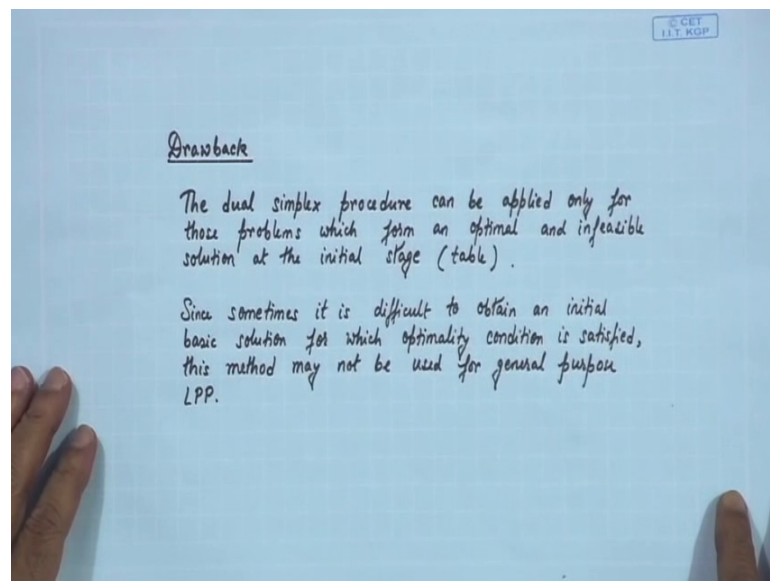 © CET
I.I.T. KGP
Drawback
The dual simplex procedure can be applied only for
those problems which form an optimal and infeasible
solution at the initial stage (table).
Since sometimes it is difficult to obtain an initial
basic solution for which optimality condition is satisfied,
this method may not be used for general purpose
LPP.